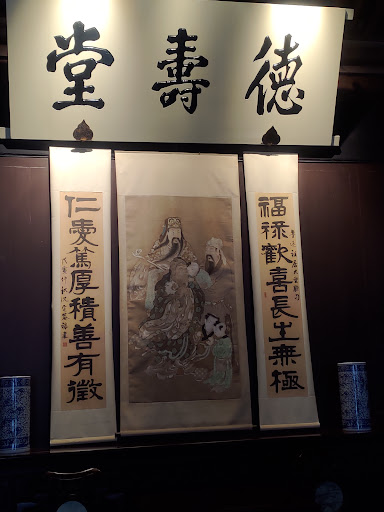 德壽堂
福祿歡喜長生無極
仁愛篤厚積善有徵